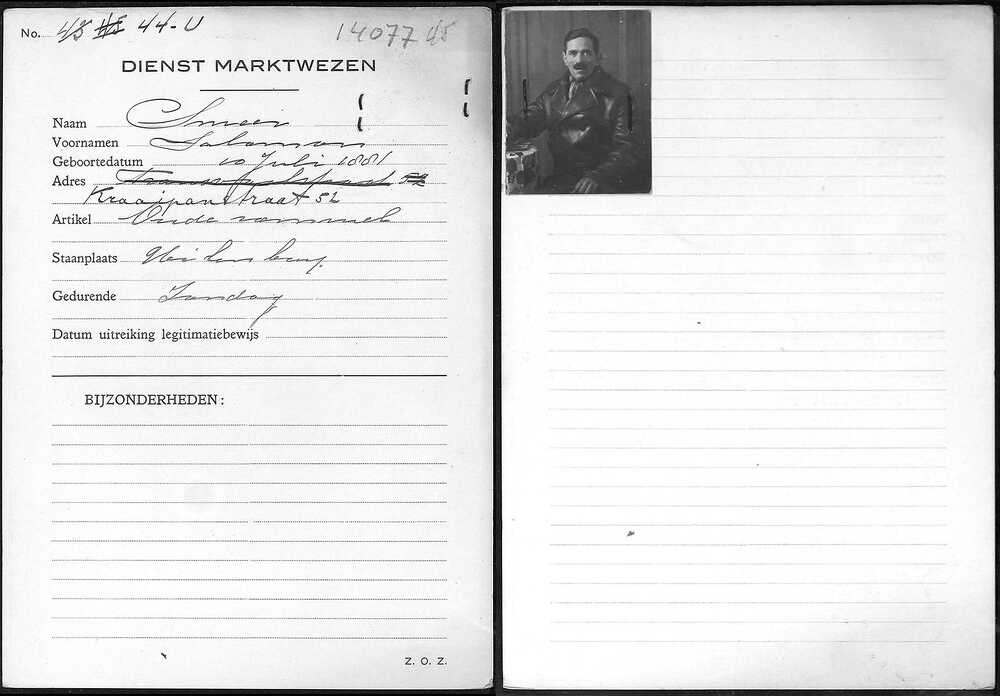 No. 45 45 44-U
14077 45
DIENST MARKTWEZEN
Naam Smeer
Voornamen Salomon
Geboortedatum 10 Juli 1881
Adres Transvaalstraat
Kraaipanstraat 52
Artikel Oude rommel
Staanplaats Uilenburg
Gedurende Zondag
Datum uitreiking legitimatiebewijs
BIJZONDERHEDEN:
Z. O. Z.